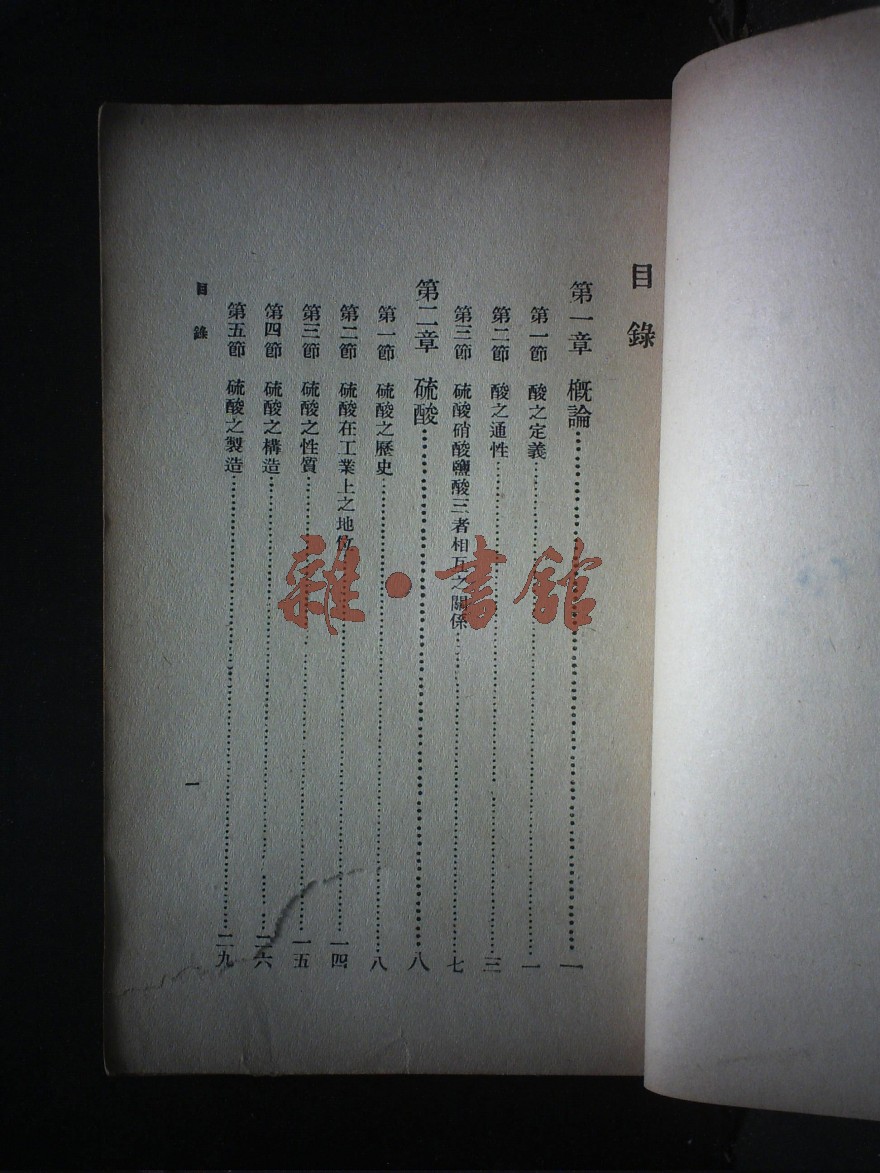 目錄
第一章 概論……………………一
第一節 酸之定義……………………一
第二節 酸之通性……………………三
第三節 硫酸硝酸鹽酸三者相互之關係……………………七
第二章 硫酸……………………八
第一節 硫酸之歷史……………………八
第二節 硫酸在工業上之地位……………………一四
第三節 硫酸之性質……………………一五
第四節 硫酸之構造……………………二六
第五節 硫酸之製造……………………二九
目錄
一
雜·書館